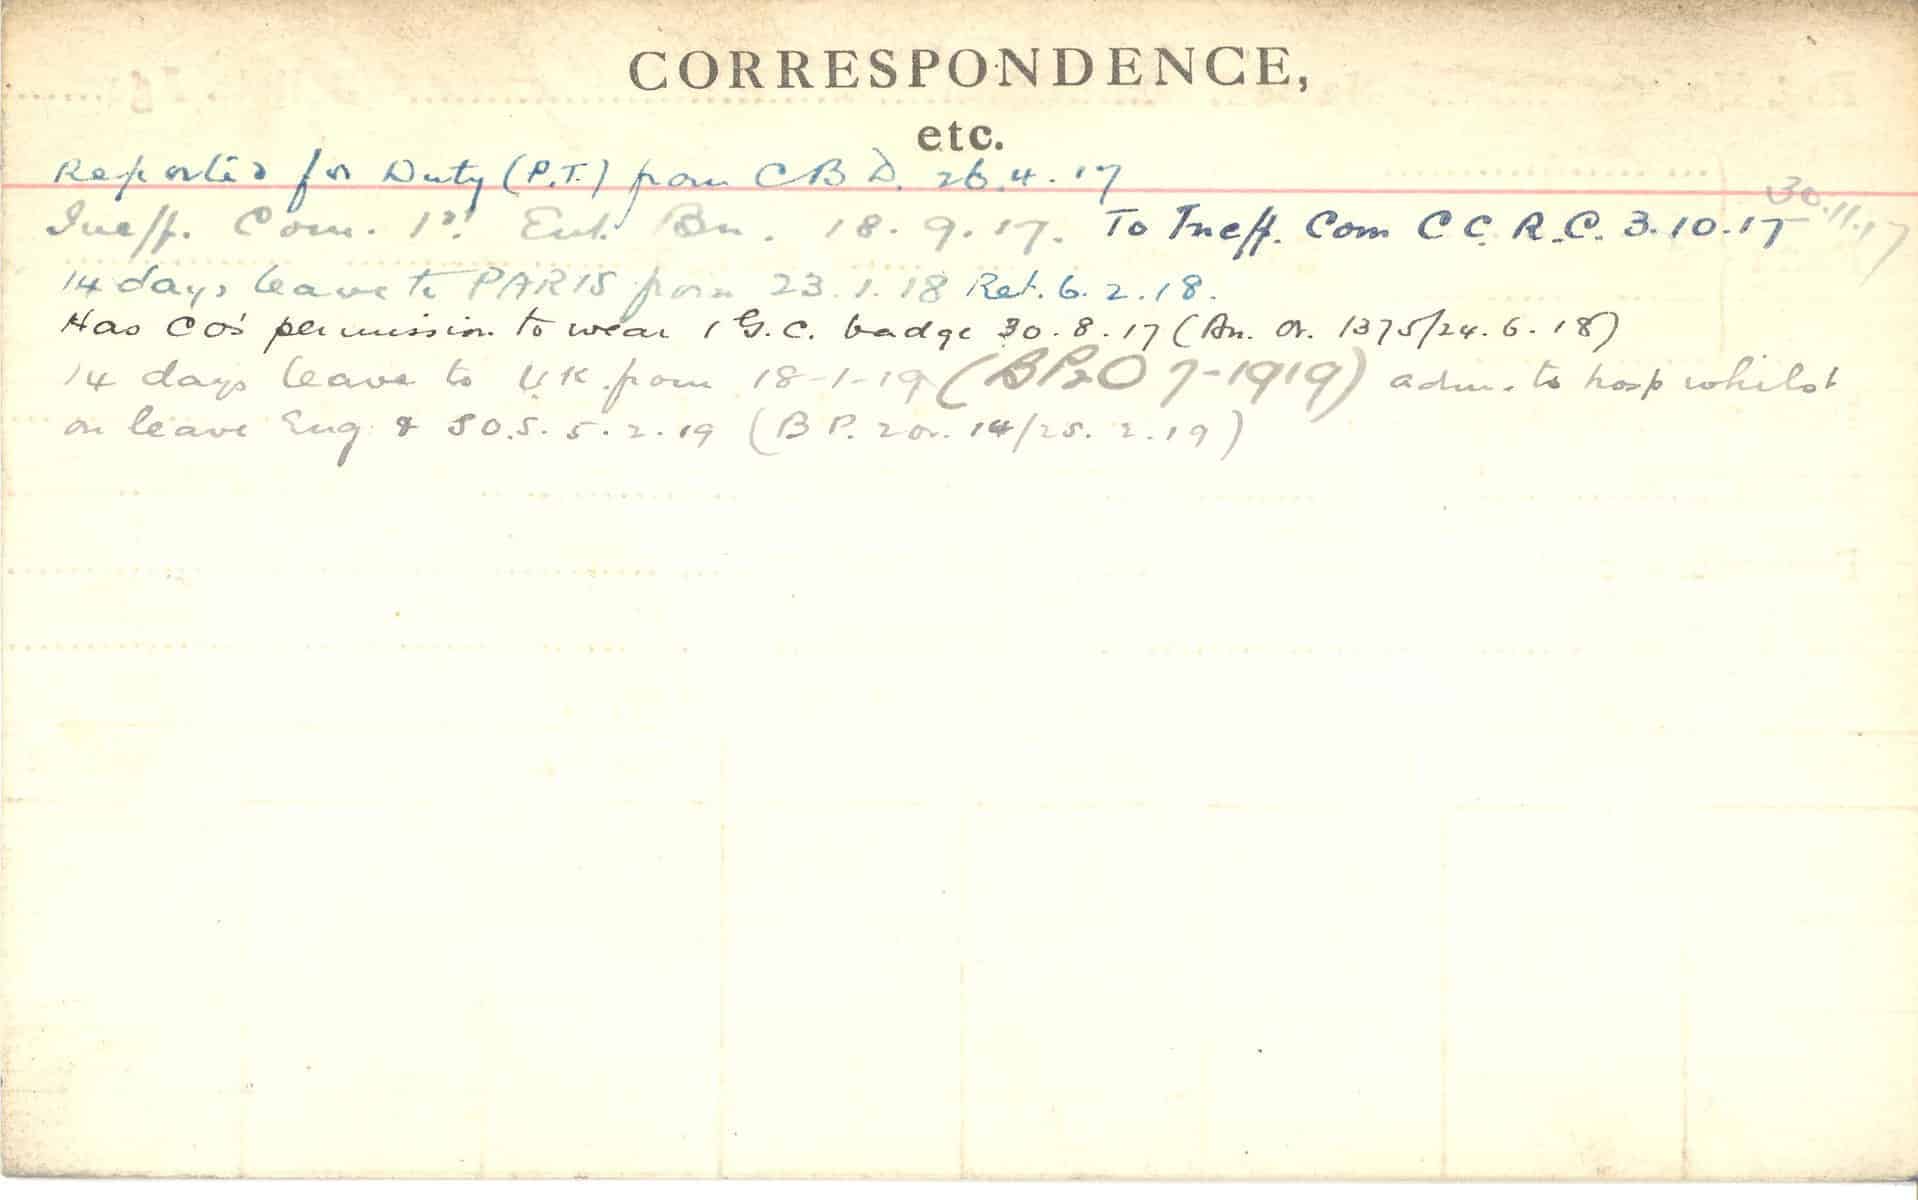 CORRESPONDENCE,
etc.
Reported for Duty (P.T.) from CBD. 26.4.17
30.11.17
Ineff. Com. 1st Ent. Bn. 18.9.17. To Ineff. Com C C. R.C. 3.10.17
14 days leave to PARIS from 23.1.18 Ret. 6.2.18.
Has CO's permission to wear 1 G.C. badge 30.8.17 (Bn. Or. 1375/24.6.18)
14 days leave to UK from 18-1-19 (BP2O 7-1919) adm. to hosp whilst
on leave Eng & SO.S. 5.2.19 (B P. 2 or. 14/25.2.19)